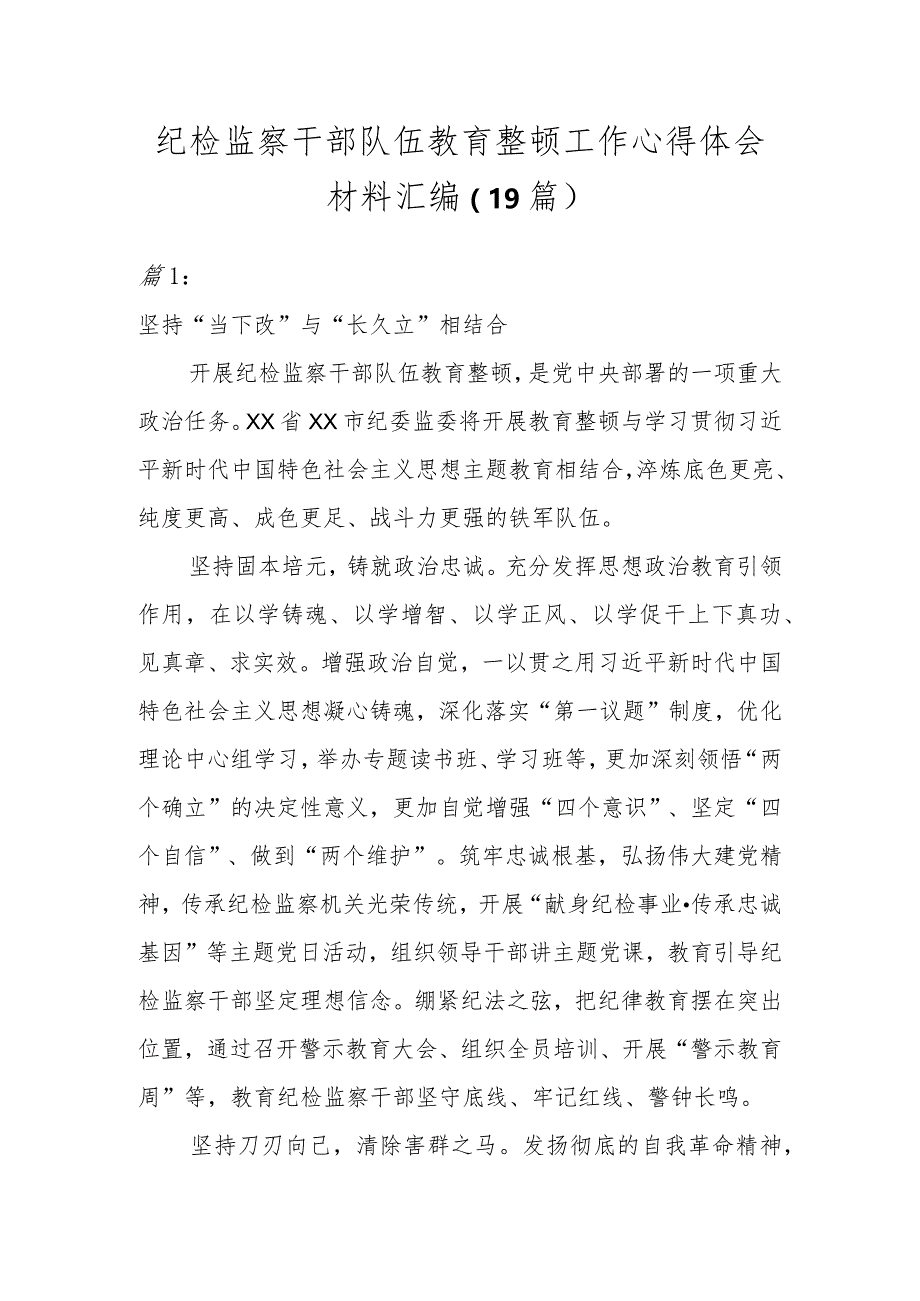 纪检监察干部队伍教育整顿工作心得体会
材料汇编(19篇）
篇1：
坚持“当下改”与“长久立”相结合
开展纪检监察干部队伍教育整顿，是党中央部署的一项重大
政治任务。XX省XX市纪委监委将开展教育整顿与学习贯彻习近
平新时代中国特色社会主义思想主题教育相结合，淬炼底色更亮、
纯度更高、成色更足、战斗力更强的铁军队伍。
坚持固本培元，铸就政治忠诚。充分发挥思想政治教育引领
作用，在以学铸魂、以学增智、以学正风、以学促干上下真功、
见真章、求实效。增强政治自觉，一以贯之用习近平新时代中国
特色社会主义思想凝心铸魂，深化落实“第一议题”制度，优化
理论中心组学习，举办专题读书班、学习班等，更加深刻领悟“两
个确立”的决定性意义，更加自觉增强“四个意识”、坚定“四
个自信”、做到“两个维护”。筑牢忠诚根基，弘扬伟大建党精
神，传承纪检监察机关光荣传统，开展“献身纪检事业•传承忠诚
基因”等主题党日活动，组织领导干部讲主题党课，教育引导纪
检监察干部坚定理想信念。绷紧纪法之弦，把纪律教育摆在突出
位置，通过召开警示教育大会、组织全员培训、开展“警示教育
周”等，教育纪检监察干部坚守底线、牢记红线、警钟长鸣。
坚持刀刃向己，清除害群之马。发扬彻底的自我革命精神，